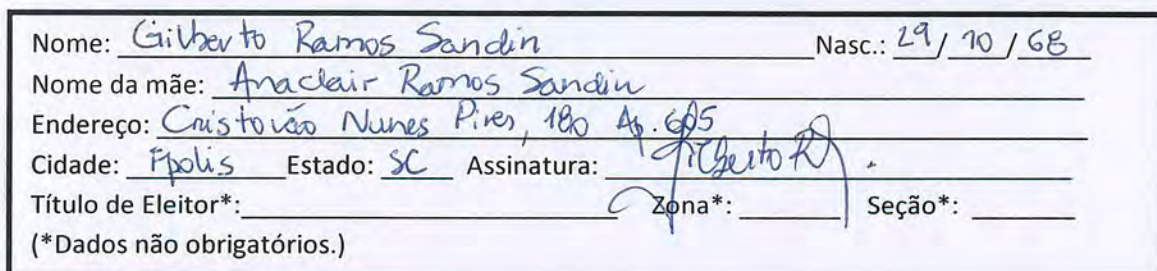 Nome: Gilberto Ramos Sandin Nasc.: 29/10/68
Nome da mãe: Anaclair Ramos Sandin
Endereço: Cristovão Nunes Pires, 180 Ap. 605
Cidade: Fpolis Estado: SC Assinatura: Gilberto R
Título de Eleitor*: Zona*: Seção*:
(*Dados não obrigatórios.)